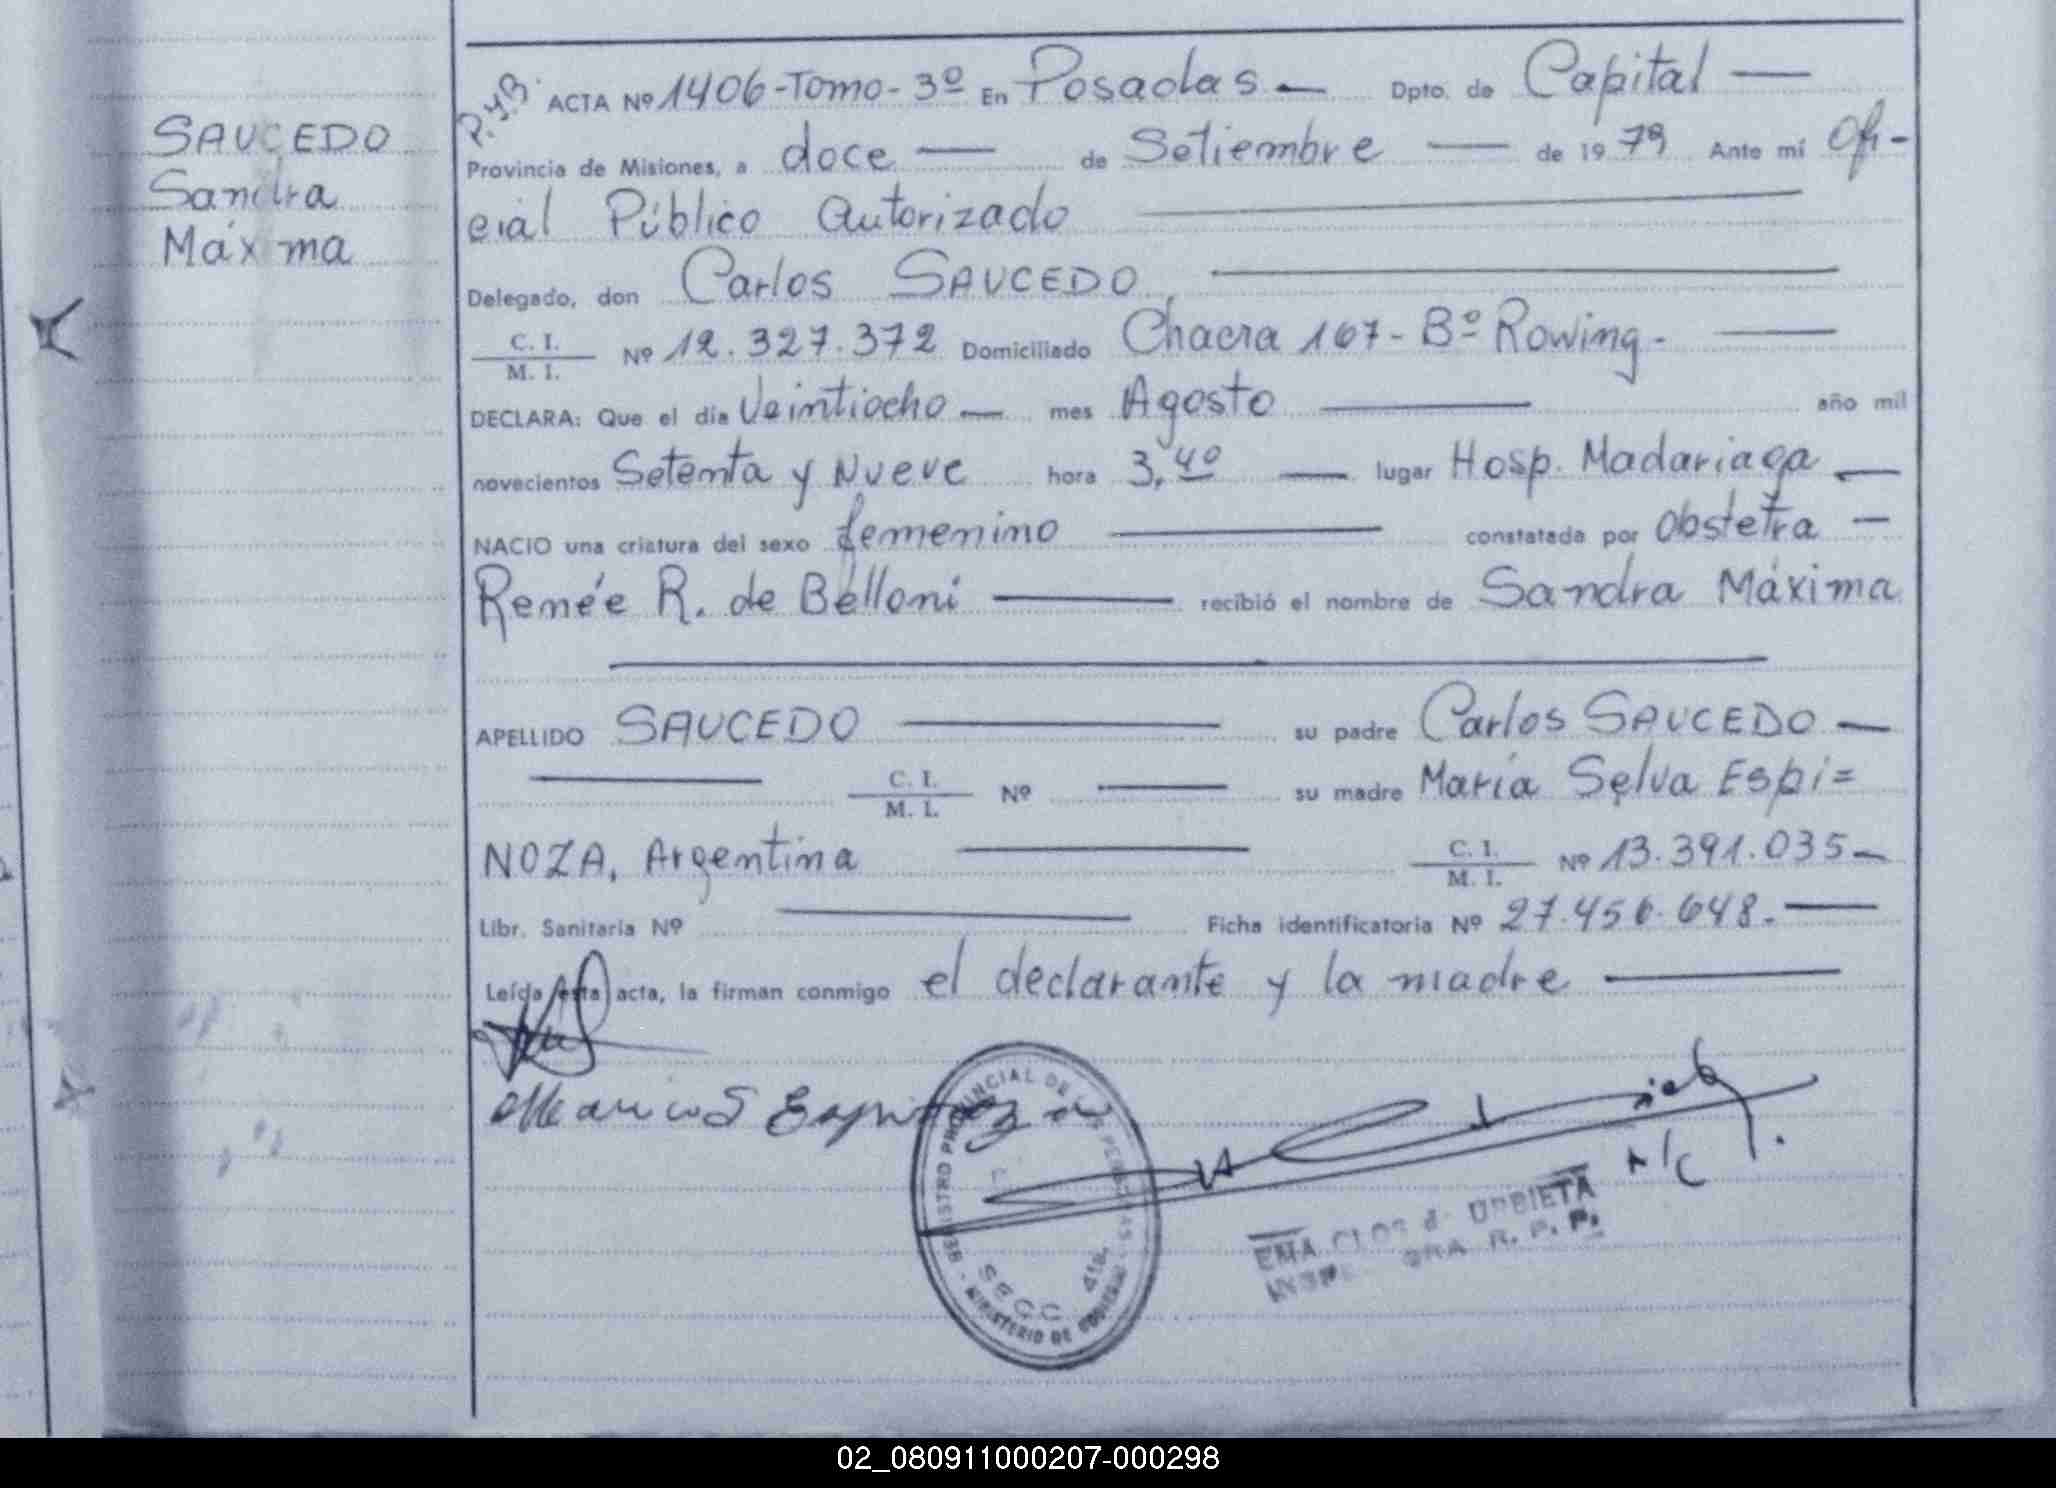 SAUCEDO
Sandra
Máxima
P.y.B. ACTA Nº 1406-Tomo-3º En Posadas — Dpto. de Capital —
Provincia de Misiones, a doce — de Setiembre — de 1979 Ante mí Ofi-
cial Público Autorizado
Delegado, don Carlos SAUCEDO
C. I. / M. I. Nº 12.327.372 Domiciliado Chacra 167-Bº Rowing-
DECLARA: Que el día Veintiocho — mes Agosto — año mil
novecientos Setenta y Nueve hora 3,40 — lugar Hosp. Madariaga —
NACIO una criatura del sexo femenino — constatada por Obstetra —
Renée R. de Belloni — recibió el nombre de Sandra Máxima
APELLIDO SAUCEDO — su padre Carlos SAUCEDO —
— C. I. / M. I. Nº — su madre María Selva Espi=
NOZA, Argentina — C. I. / M. I. Nº 13.391.035-
Libr. Sanitaria Nº — Ficha identificatoria Nº 27.456.648.-
Leída esta acta, la firman conmigo el declarante y la madre —
REGISTRO PROVINCIAL DE LAS PERSONAS - MINISTERIO DE GOBIERNO
EMA URBIETA
R. P. P.
02_080911000207-000298